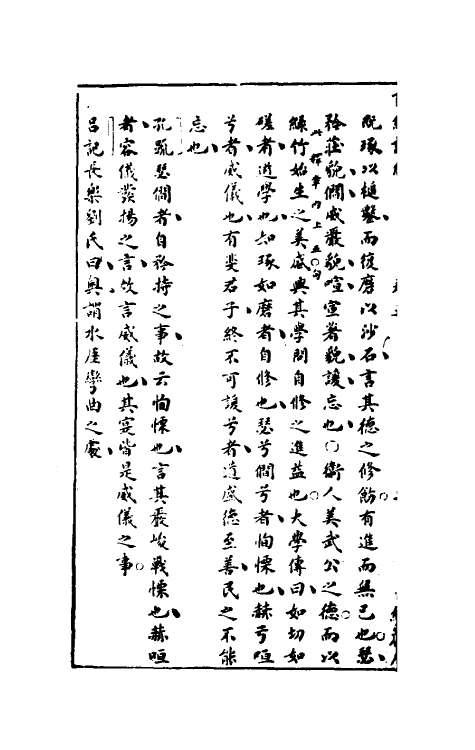 既琢以槌鑿而復磨以沙石言其德之修飭有進而無已也瑟
矜莊貌僩威嚴貌喧宣著貌諼忘也○衛人美武公之德而以
綠竹始生之美盛興其學問自修之進益也大學傳曰如切如
此釋章內上五句
磋者道學也如琢如磨者自修也瑟兮僩兮者恂慄也赫兮咺
兮者威儀也有斐君子終不可諼兮者道盛德至善民之不能
忘也
孔疏瑟僩者自矜持之事故云恂慄也言其嚴峻戰慄也赫咺
者容儀發揚之言故言威儀也其寔皆是威儀之事
呂記長樂劉氏曰奧謂水厓彎曲之處